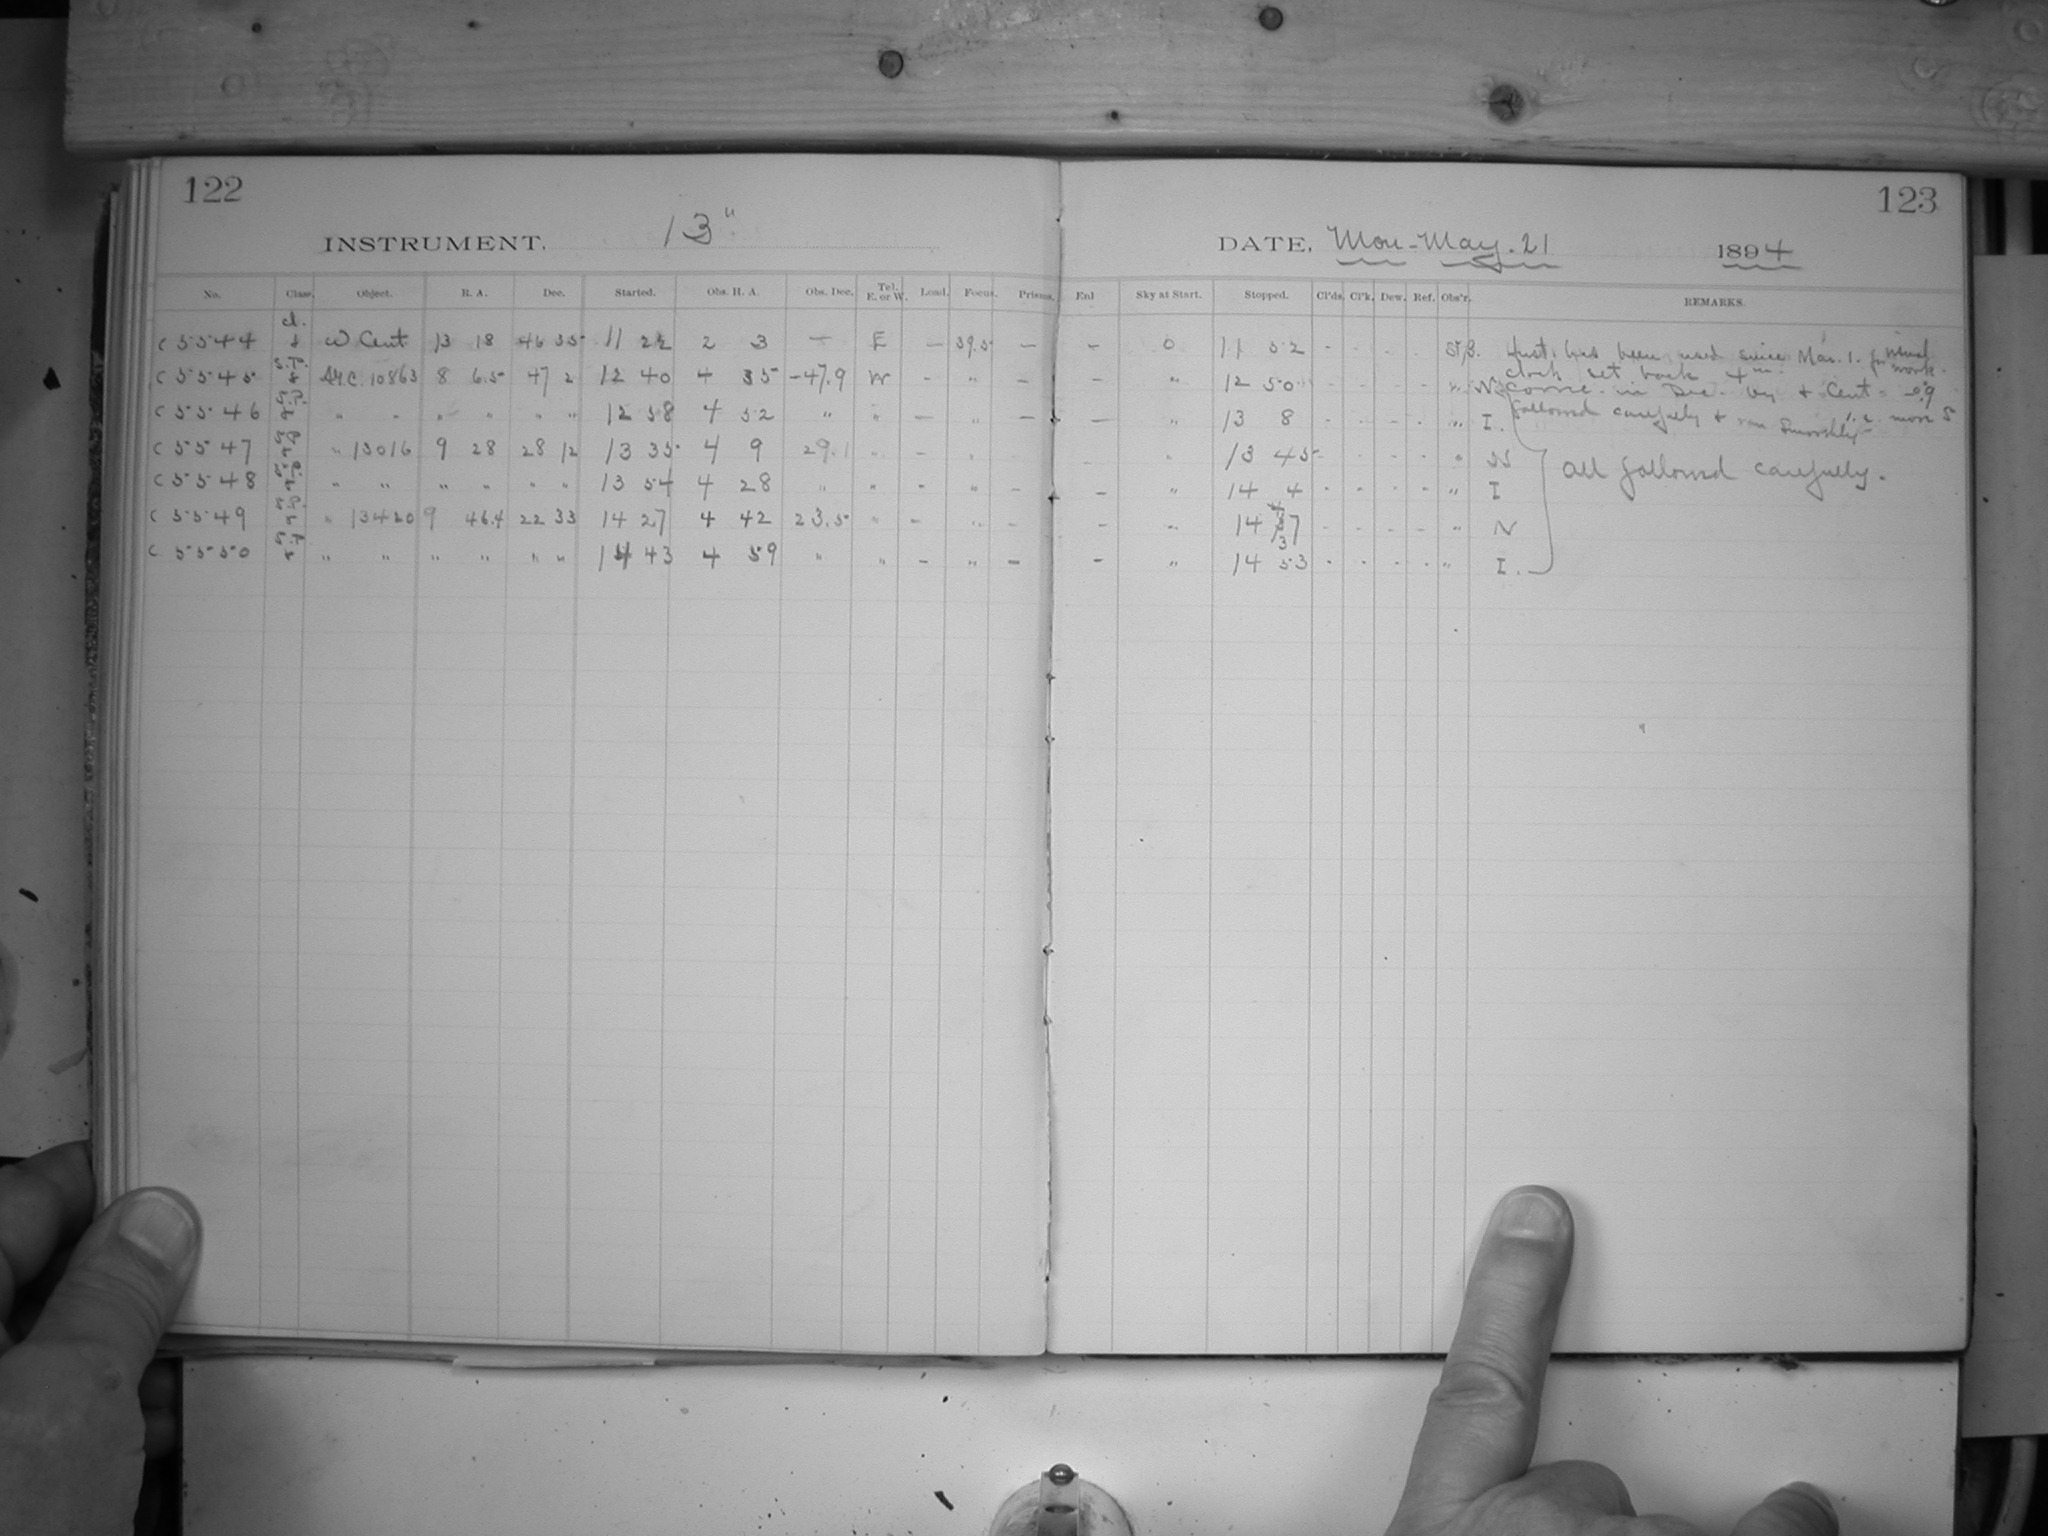 122
INSTRUMENT. 13"
No. Class. Object. R. A. Dec. Started. Obs. H. A. Obs. Dec. Tel. E. or W. Load. Focus. Prisms.
cl.
C 5544 ω Cent 13 18 46 35 11 22 2 3 — E — 39.5 —
C 5545 A.G.C. 10863 8 6.5 47 2 12 40 4 35 -47.9 W - " —
C 5546 " " " " " " 12 58 4 52 " " — " —
C 5547 " 13016 9 28 28 12 13 35 4 9 29.1 " - "
C 5548 " " " " " " 13 54 4 28 " " - " —
C 5549 " 13420 9 46.4 22 33 14 27 4 42 23.5 " - " —
C 5550 " " " " " " 14 43 4 59 " " — " —
123
DATE, Mon - May. 21 1894
Enl Sky at Start. Stopped. Cl'ds. Cl'k. Dew. Ref. Obs'r. REMARKS.
— 0 11 52 - - - - Inst. has been used since Mar. 1. for visual work.
clock set back 4m.
- " 12 50 - - - - " N corre. in Dec. by + Cent = -0.9
— " 13 8 - - - - " I. followed carefully + ran smoothly
" 13 45 - - - - " N
— " 14 4 - - - - " I All followed carefully.
- " 14 37 - - - - " N
- " 14 53 - - - - " I.